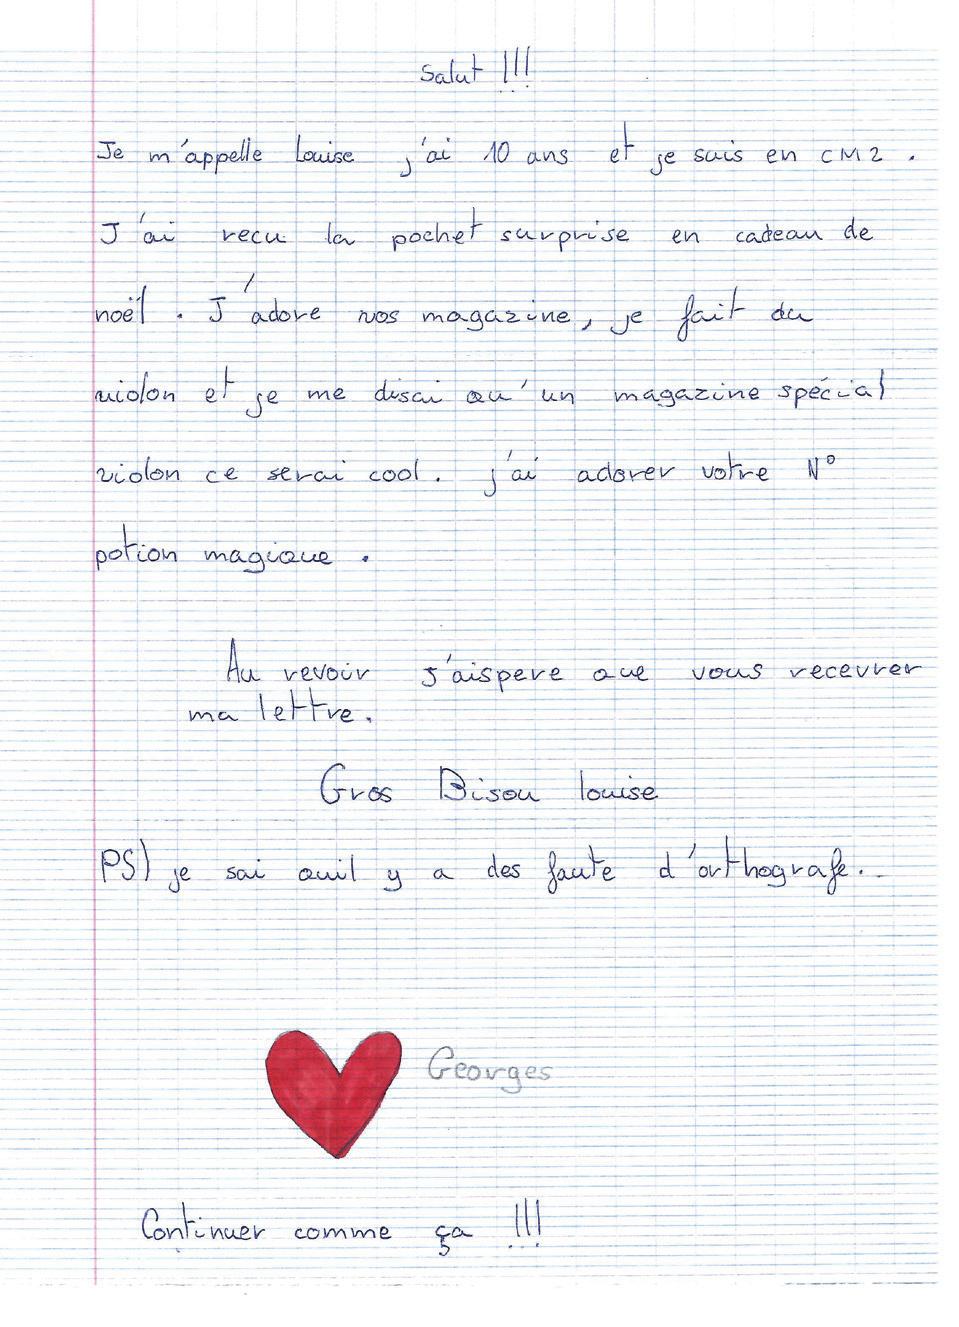 Salut !!!
Je m'appelle Louise j'ai 10 ans et je suis en CM2 .
J'ai recu la pochet surprise en cadeau de
noël . J'adore vos magazine, je fait du
violon et je me disai qu'un magazine spécial
violon ce serai cool. j'ai adorer votre N°
potion magique .
Au revoir J'aispere que vous recevrer
ma lettre.
Gros Bisou louise
PS) je sai quil y a des faute d'orthografe..
Georges
Continuer comme ça !!!